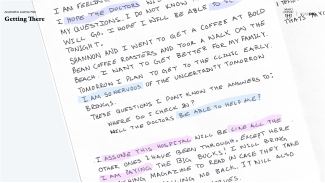 Getting There
I AM FEELING
I HOPE THE DOCTORS
MY QUESTIONS. I DO NOT KNOW
WILL GO. I HOPE I WILL BE ABLE TO
TONIGHT.
SHANNON AND I WENT TO GET A COFFEE AT BOLD
BEAN COFFEE ROASTERS AND TOOK A WALK ON THE
BEACH. I WANT TO GET BETTER FOR MY FAMILY.
TOMORROW I PLAN TO GET TO THE CLINIC EARLY.
I AM SO NERVOUS OF THE UNCERTAINTY TOMORROW
BRINGS.
THESE QUESTIONS I DON'T KNOW THE ANSWERS TO:
WHERE DO I CHECK IN?
WILL THE DOCTORS BE ABLE TO HELP ME?
I ASSUME THIS HOSPITAL WILL BE LIKE ALL THE
OTHER ONES I HAVE BEEN THROUGH, EXCEPT HERE
I AM PAYING THE BIG BUCKS! I WILL BRING
MAGAZINE TO READ IN CASE THEY TAKE
ME BACK. IT WILL ALSO
THAT'S